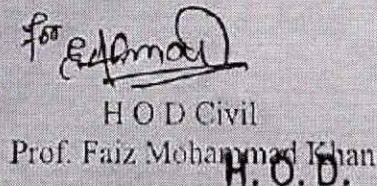 for
H O D Civil
Prof. Faiz Mohammad Khan
H. O. D.